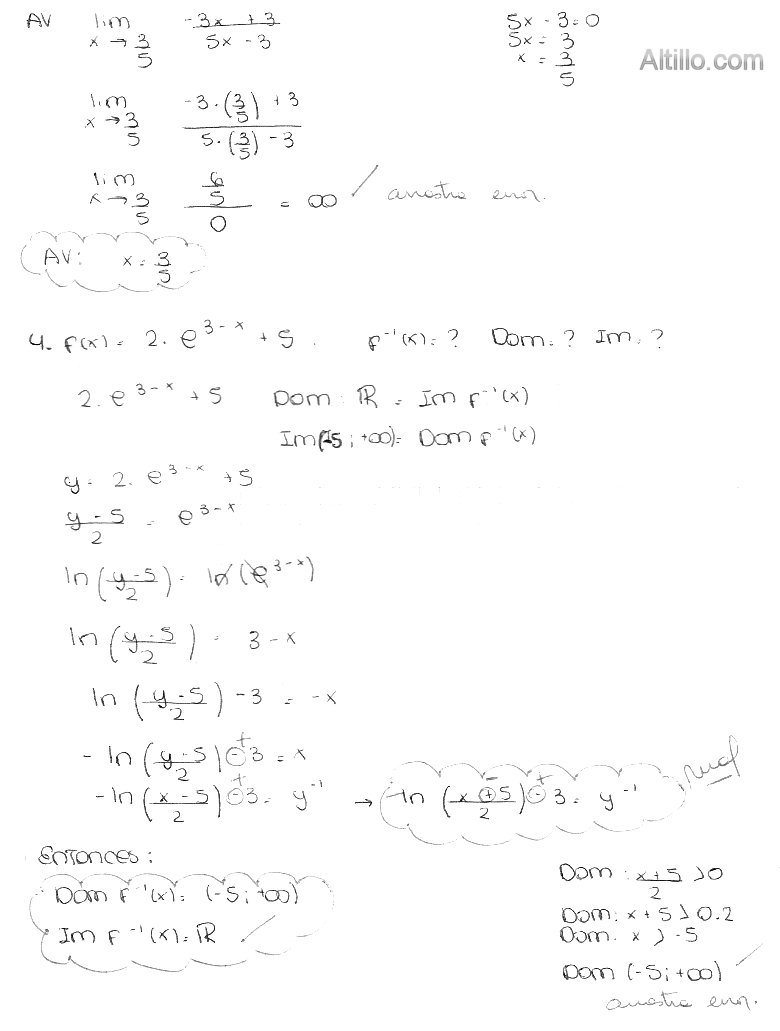 AV lim x → 3/5 (-3x + 3)/(5x - 3)
5x - 3 = 0
5x = 3
x = 3/5
Altillo.com
lim x → 3/5 (-3 · (3/5) + 3)/(5 · (3/5) - 3)
lim x → 3/5 (6/5)/0 = ∞ ✓ arrastra error.
AV: x = 3/5
4. f(x) = 2 · e^(3-x) + 5 . f⁻¹(x) = ? Dom: ? Im: ?
2 · e^(3-x) + 5 Dom: ℝ = Im f⁻¹(x)
Im(-5; +∞) = Dom f⁻¹(x)
y = 2 · e^(3-x) + 5
(y - 5)/2 = e^(3-x)
ln((y - 5)/2) = ln(e^(3-x))
ln((y - 5)/2) = 3 - x
ln((y - 5)/2) - 3 = -x
- ln((y - 5)/2) ⊖ + 3 = x
- ln((x - 5)/2) ⊖ + 3 = y⁻¹ → - ln((x ⊕ - 5)/2) ⊖ + 3 = y⁻¹
Entonces:
Dom f⁻¹(x) = (-5; +∞)
Im f⁻¹(x) = ℝ ✓
Dom: (x + 5)/2 > 0
Dom: x + 5 > 0.2
Dom. x > -5
Dom (-5; +∞) ✓
arrastra error.